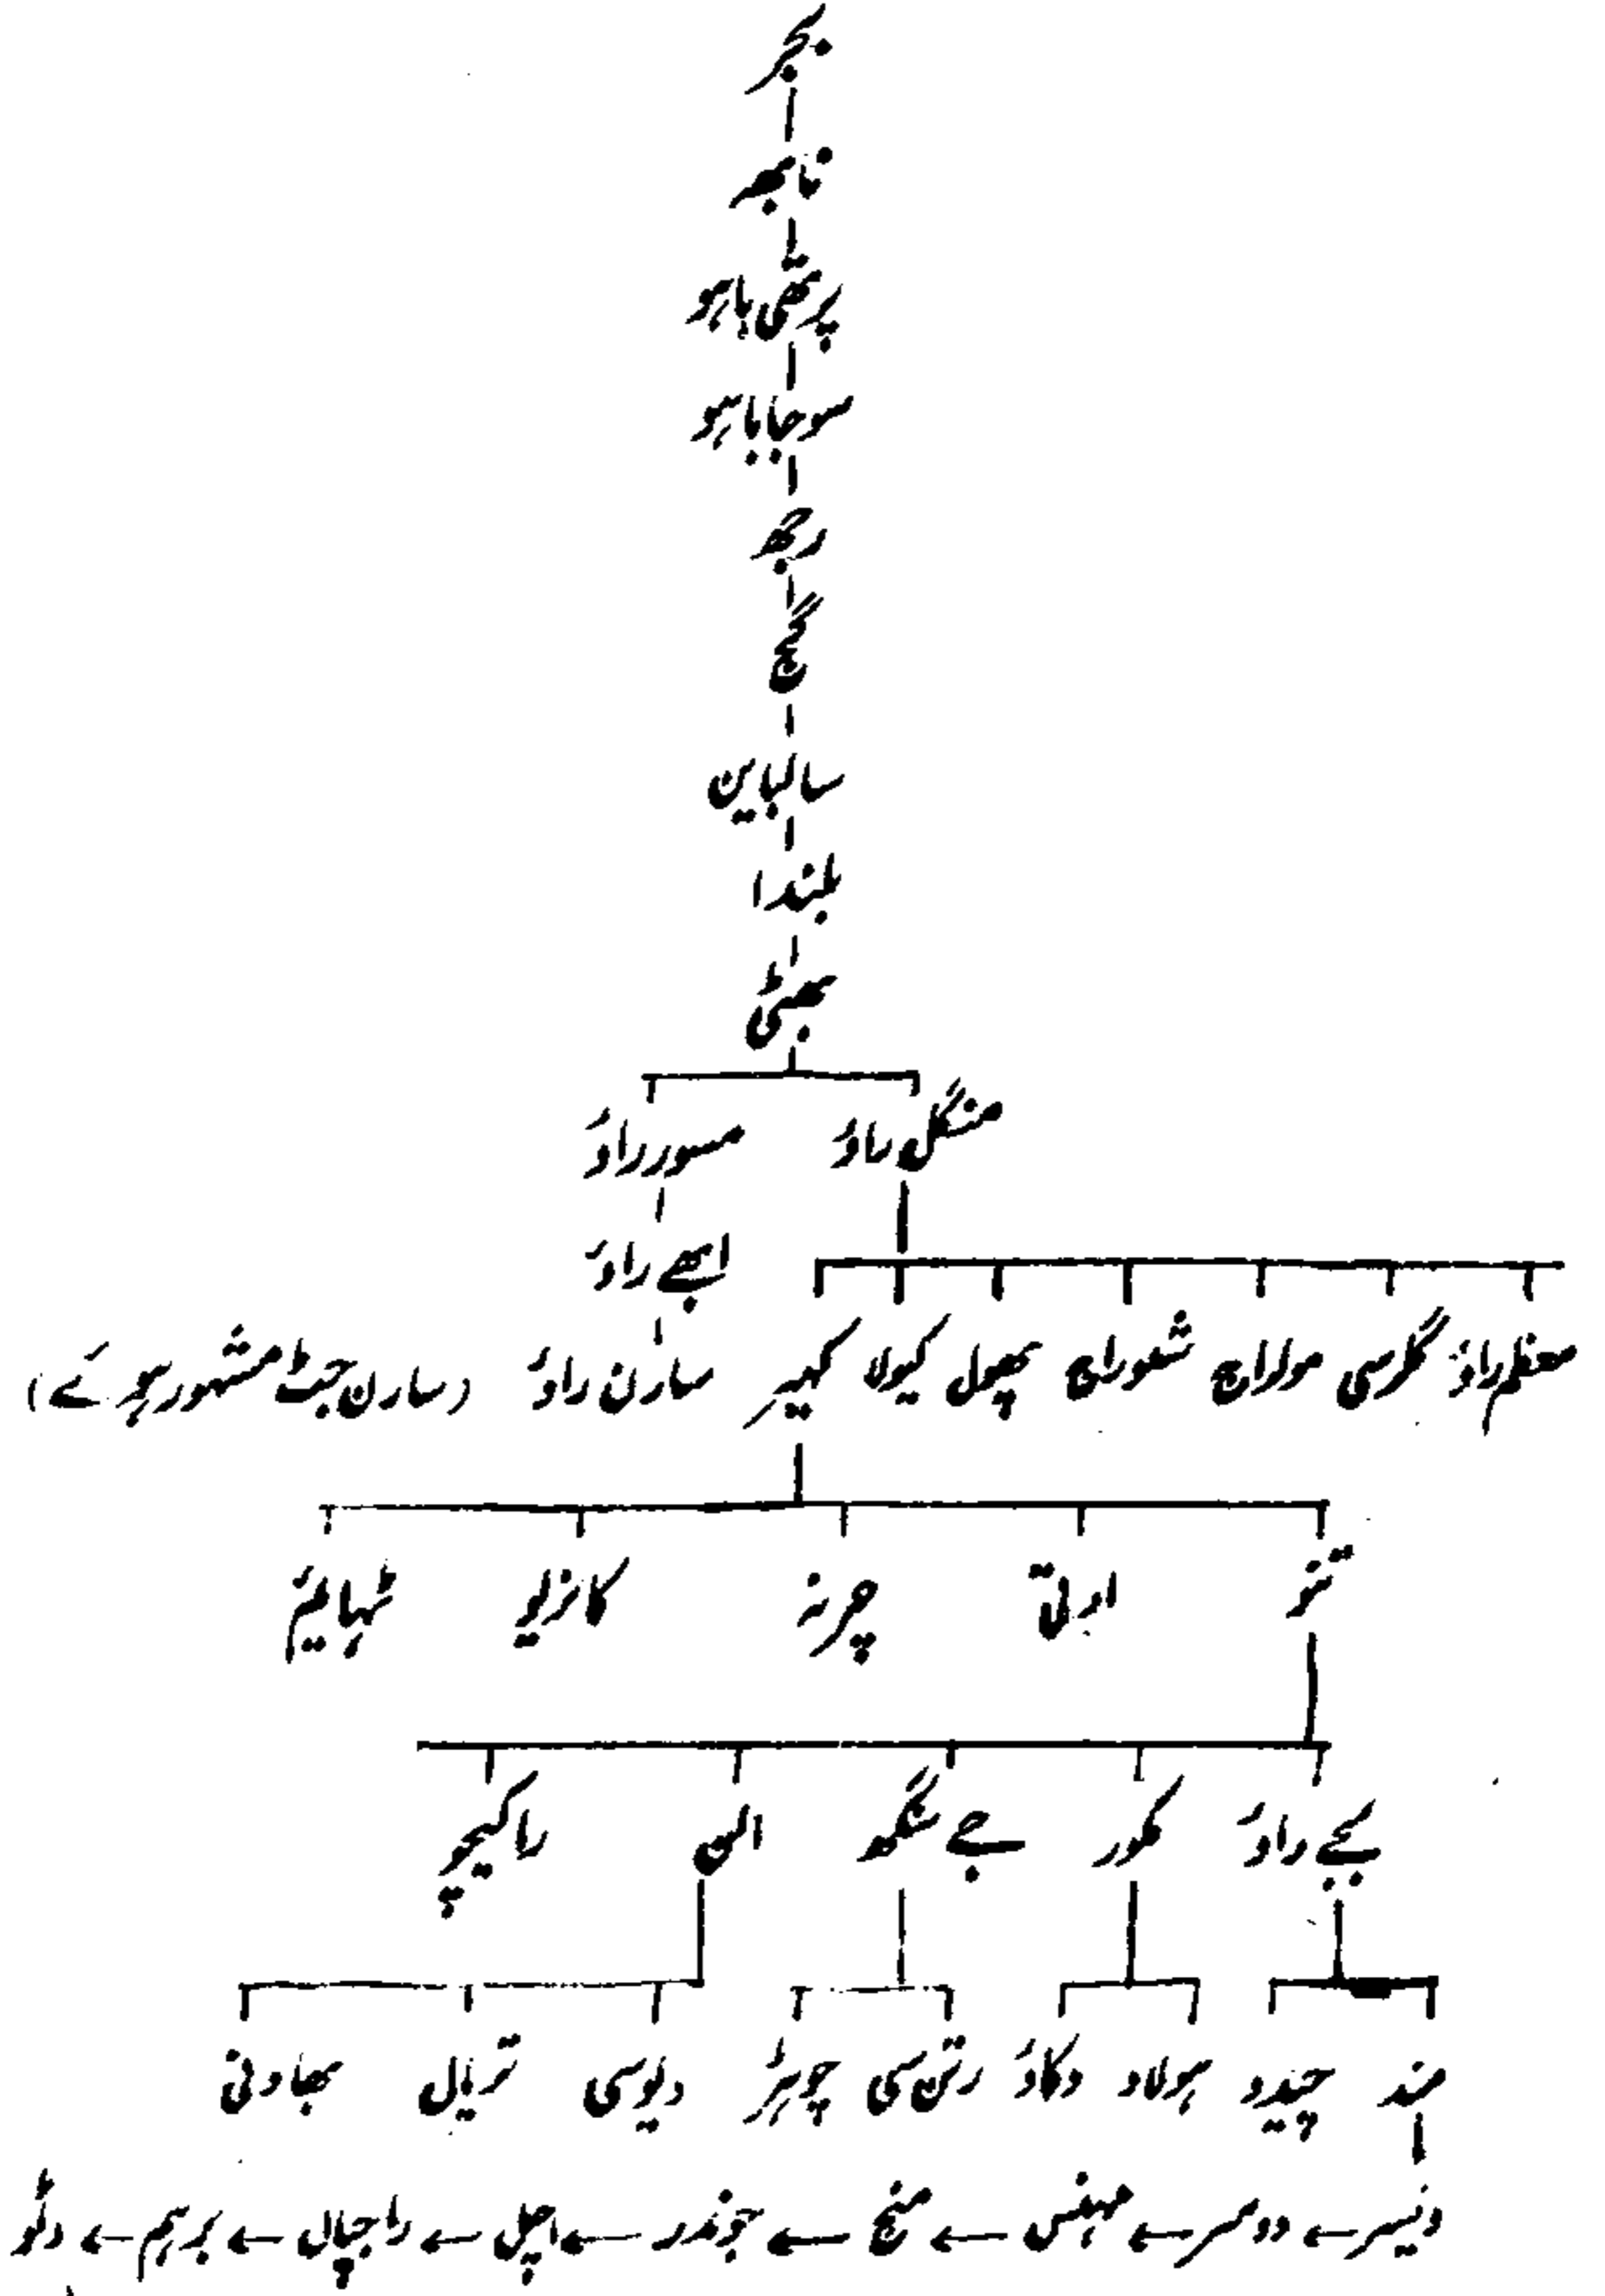 بجر
نابھ
پرتھی باہو
سوجاباہو
رجھ
گج
سالباہن
بلندا
بھٹی
منگل راؤ مسور راؤ
ابھے راؤ
معظم راؤ گلرسی مولراج شوراج پھول کیولا کہیر سارن راؤ (سارن جٹ مشہور ہوئے)
تنو اورنی چرنہ کانریو
بجے راؤ مکور جے تنگھ الن راکیچہ
مند چیدو ہولاد دکاؤ رتن سی چوہڑ دیوسی تریال بھاونی
دنیسر ے دوسر ے مہنس ے منج ے جوندر ے اچل ے راجپال ے برہم ے دلو